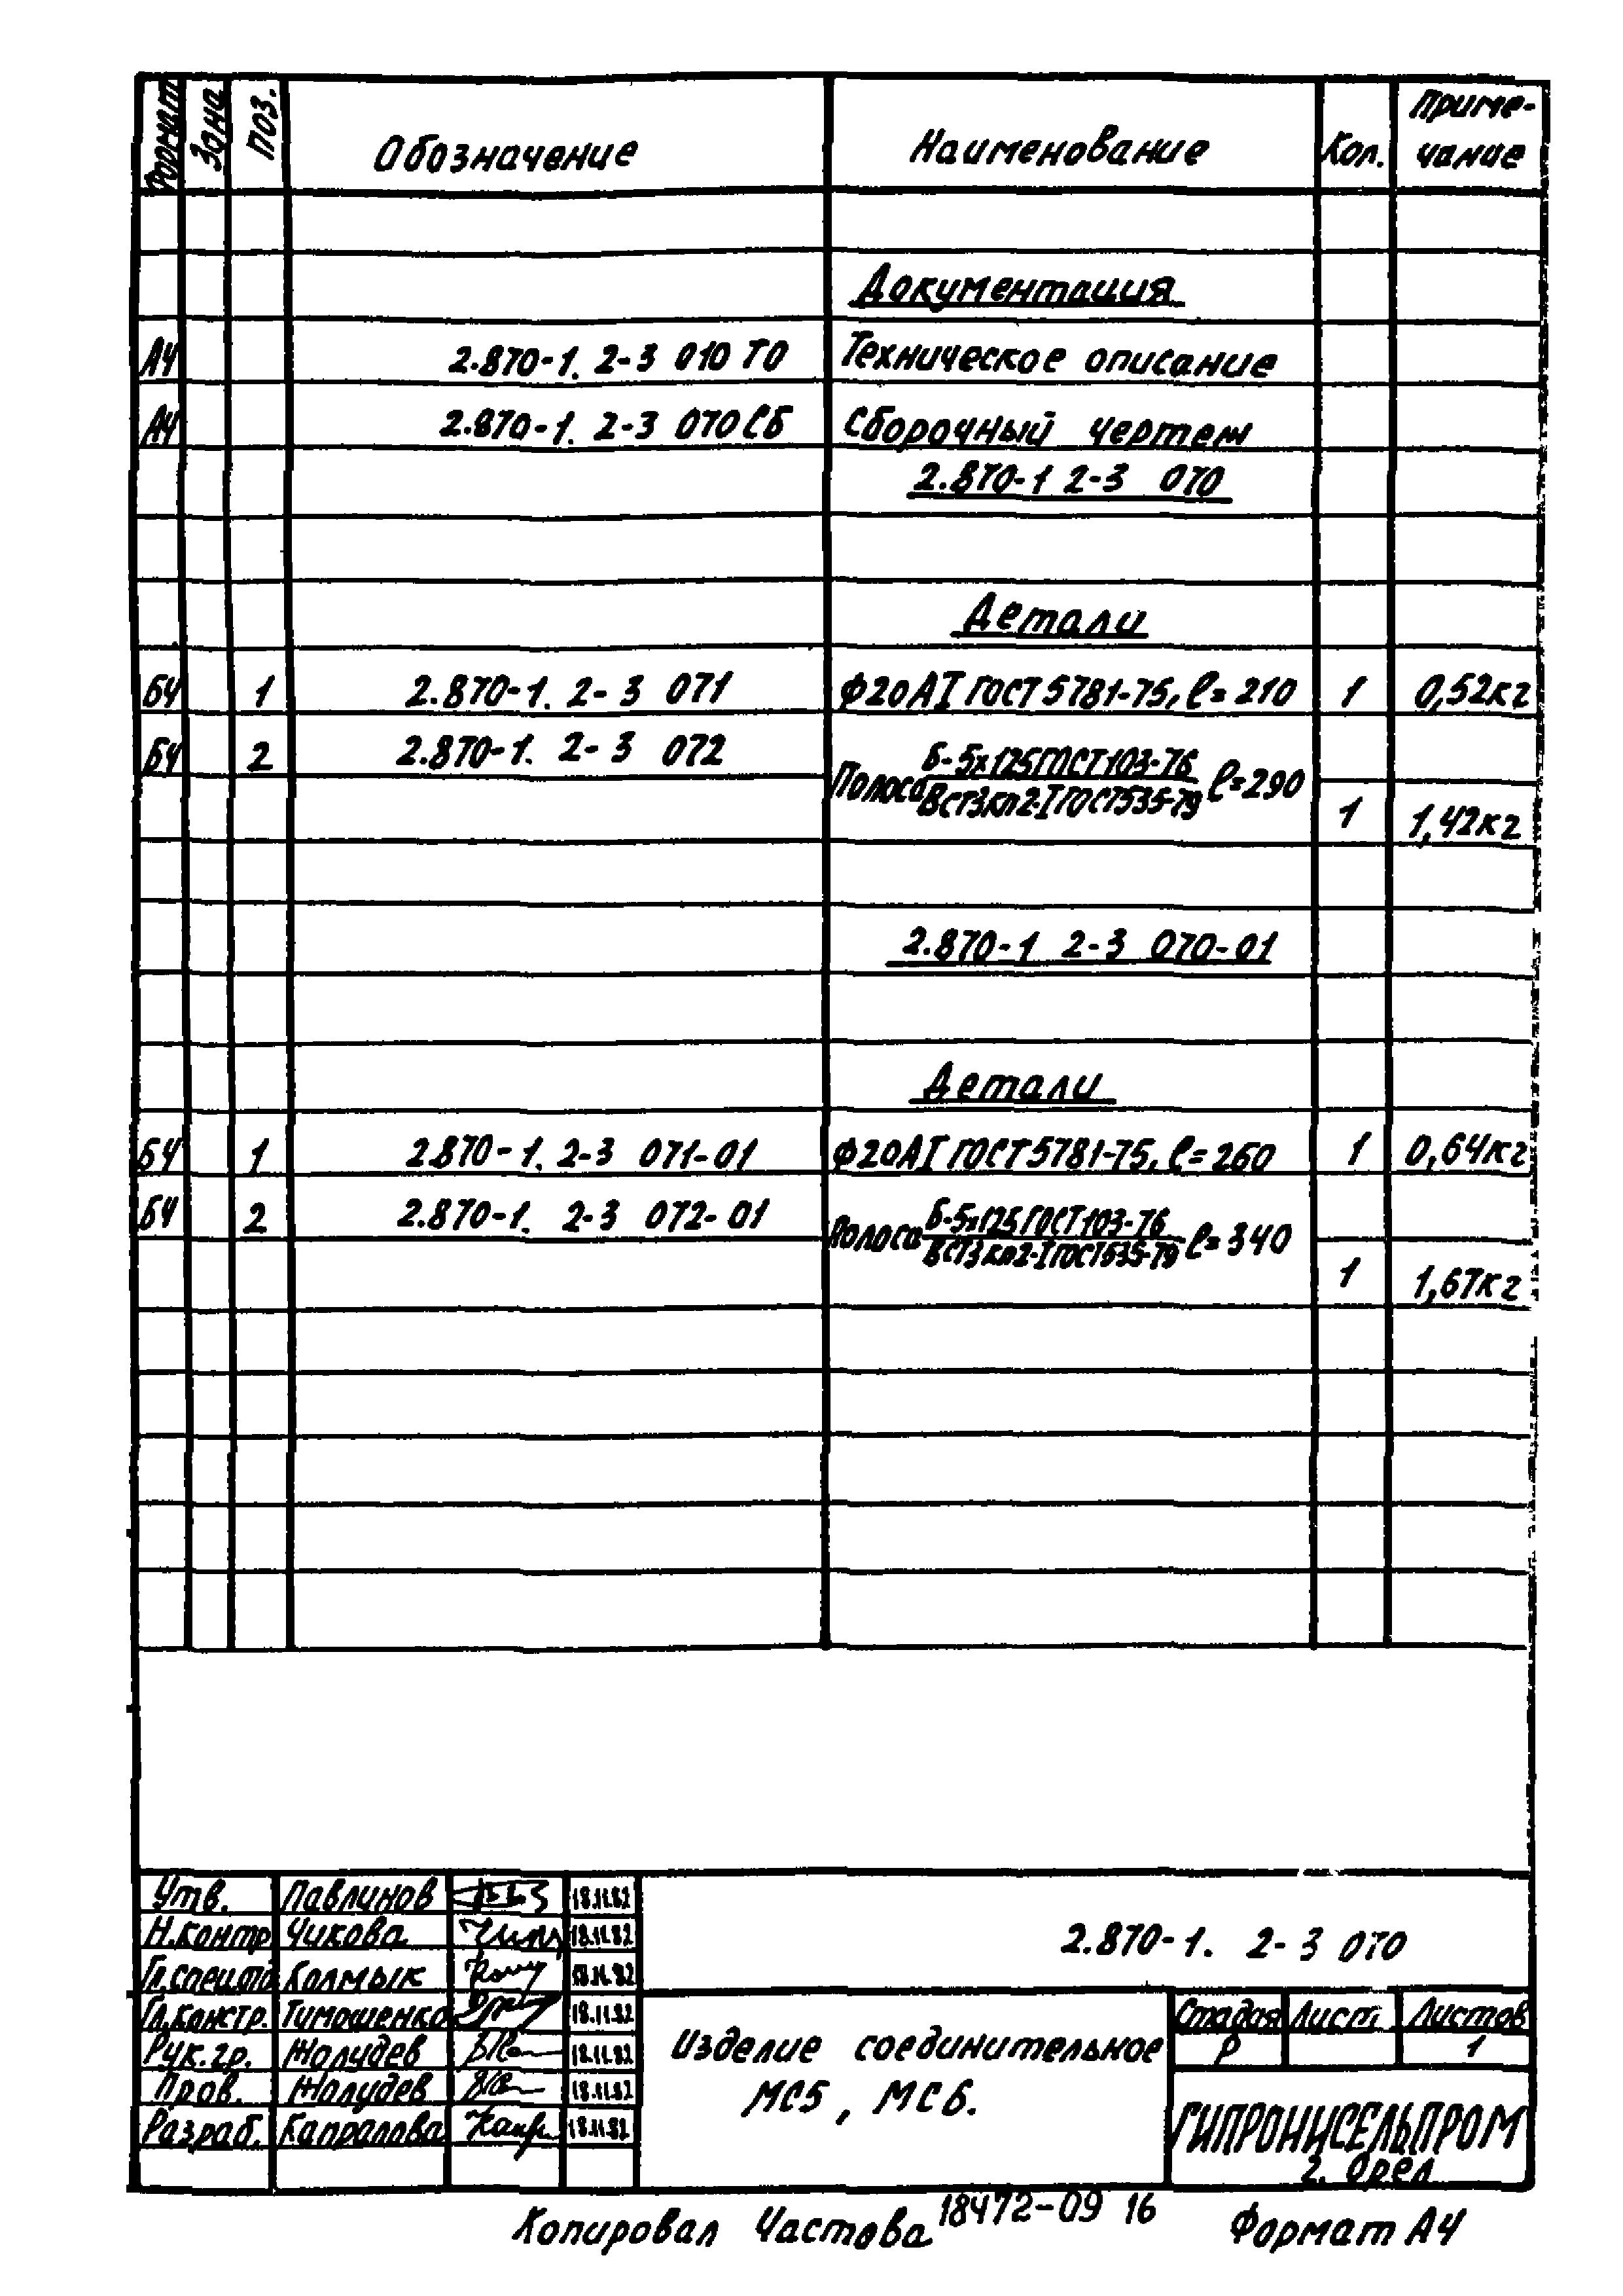 Формат Зона Поз. Обозначение Наименование Кол. Приме-
чание
Документация
А4 2.870-1. 2-3 010 ТО Техническое описание
А4 2.870-1. 2-3 070 СБ Сборочный чертеж
2.870-1 2-3 070
Детали
БЧ 1 2.870-1. 2-3 071 Ф20АI ГОСТ 5781-75, ℓ=210 1 0,52кг
БЧ 2 2.870-1. 2-3 072 Полоса Б-5х125 ГОСТ 103-76
ВСТ3кп2-I ГОСТ 535-79 ℓ=290
1 1,42кг
2.870-1 2-3 070-01
Детали
БЧ 1 2.870-1. 2-3 071-01 Ф20АI ГОСТ 5781-75, ℓ=260 1 0,64кг
БЧ 2 2.870-1. 2-3 072-01 Полоса Б-5х125 ГОСТ 103-76
ВСТ3кп2-I ГОСТ 535-79 ℓ=340
1 1,67кг
Утв. Павлинов 18.11.82
Н.контр Чикова 18.11.82
Гл.спец.отд Колмык 18.11.82
Гл.констр. Тимошенко 18.11.82
Рук.гр. Жолудев 18.11.82
Пров. Жолудев 18.11.82
Разраб. Капралова 18.11.82
2.870-1. 2-3 070
Изделие соединительное
МС5, МС6.
Стадия Лист Листов
Р 1
ГИПРОНИСЕЛЬПРОМ
г. Орел
Копировал Частова 18472-09 16 Формат А4